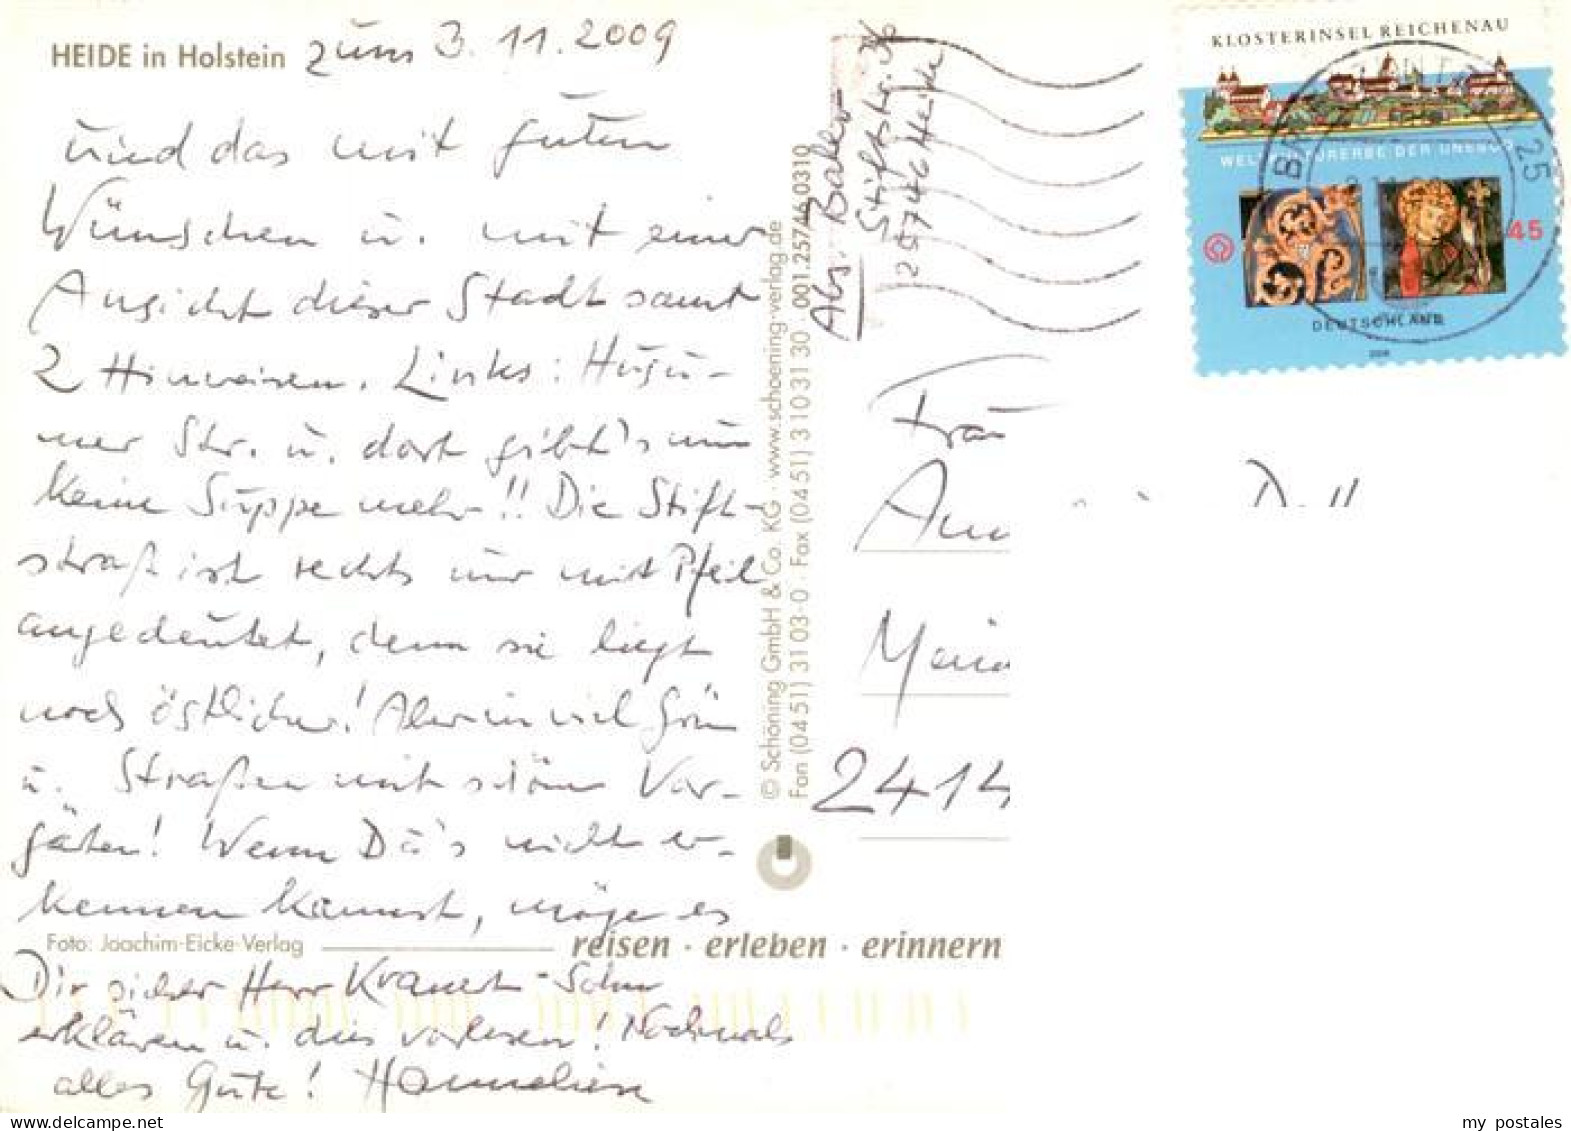 HEIDE in Holstein zum 3.11.2009
und das mit guten
Wünschen u. mit einer
Ansicht dieser Stadt samt
2 Hinweisen. Links:
Str. u. dort gibt's nun
keine Suppe mehr!! Die Stift-
straße ist rechts nur mit Pfeil
angedeutet, denn sie liegt
noch östlicher! Aber in viel Grün
u. Straßen mit schönen Vor-
gärten! Wenn Du's nicht er-
kennen kannst, möge es
Foto: Joachim-Eicke-Verlag
reisen · erleben · erinnern
Dir sicher Herr -Sohn
erklären u. dies vorlesen! Nochmals
alles Gute! Hanneliese
© Schöning GmbH & Co. KG · www.schoening-verlag.de
Fon (0451) 31 03-0 · Fax (0451) 3 10 31 30 001.25746.0310
Abs.
Stiftstr. 36
25746 Heide
KLOSTERINSEL REICHENAU
WELTKULTURERBE DER UNESCO
45
DEUTSCHLAND
25
Frau
2414
my postales